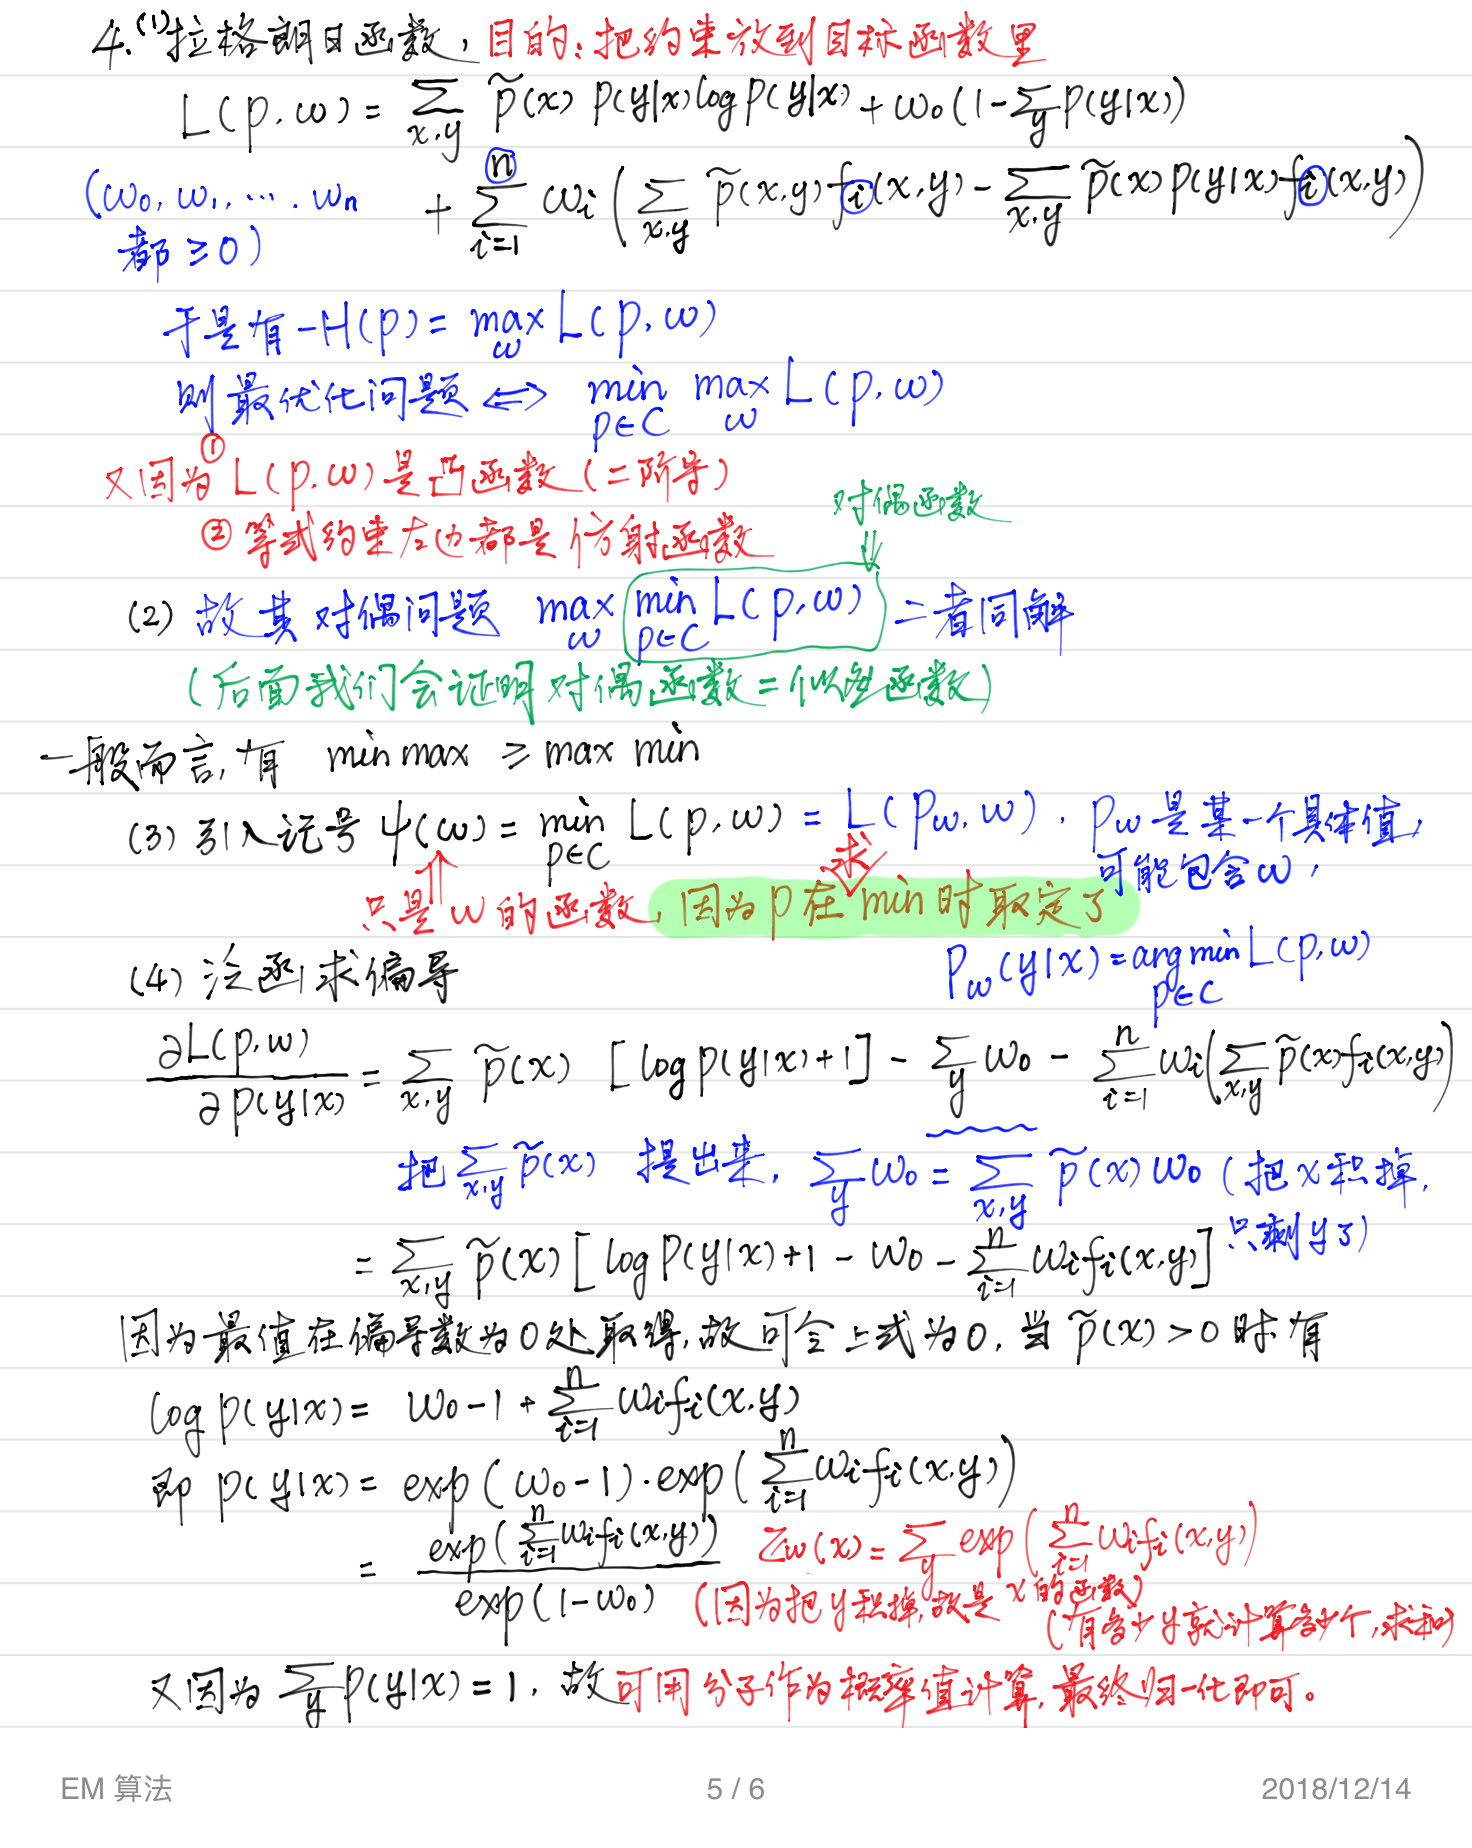 4.(1)拉格朗日函数，目的：把约束放到目标函数里
L(p,w) = ∑_{x,y} p̃(x) p(y|x) log p(y|x) + w₀(1-∑_y p(y|x))
+ ∑_{i=1}^{n} wᵢ(∑_{x,y} p̃(x,y)fᵢ(x,y) - ∑_{x,y} p̃(x)p(y|x)fᵢ(x,y))
(w₀, w₁, …. wₙ
都 ≥0)
于是有 -H(p) = max_w L(p,w)
则最优化问题 ⟺ min_{p∈C} max_w L(p,w)
又因为 ① L(p,w)是凸函数(二阶导)
② 等式约束左边都是仿射函数
对偶函数
(2) 故其对偶问题 max_w min_{p∈C} L(p,w) 二者同解
(后面我们会证明对偶函数=似然函数)
一般而言,有 min max ≥ max min
(3) 引入记号 ψ(w) = min_{p∈C} L(p,w) = L(p_w, w). p_w 是某一个具体值，
求
可能包含w，
只是w的函数，因为p在min时取定了
P_w(y|x) = arg min_{p∈C} L(p,w)
(4) 泛函求偏导
∂L(p,w)/∂p(y|x) = ∑_{x,y} p̃(x) [log p(y|x)+1] - ∑_y w₀ - ∑_{i=1}^{n} wᵢ(∑_{x,y} p̃(x)fᵢ(x,y))
把 ∑_{x,y} p̃(x) 提出来, ∑_y w₀ = ∑_{x,y} p̃(x) w₀ (把x积掉,
只剩y了)
= ∑_{x,y} p̃(x) [log p(y|x)+1 - w₀ - ∑_{i=1}^{n} wᵢfᵢ(x,y)]
因为最值在偏导数为0处取得,故可令上式为0, 当 p̃(x)>0 时有
log p(y|x) = w₀-1 + ∑_{i=1}^{n} wᵢfᵢ(x,y)
即 p(y|x) = exp(w₀-1)·exp(∑_{i=1}^{n} wᵢfᵢ(x,y))
= exp(∑_{i=1}^{n} wᵢfᵢ(x,y)) / exp(1-w₀)
Z_w(x) = ∑_y exp(∑_{i=1}^{n} wᵢfᵢ(x,y))
(因为把y积掉,故是x的函数)
(有多少y就计算多少个,求和)
又因为 ∑_y p(y|x) = 1, 故可用分子作为概率值计算,最终归一化即可。
EM 算法
5 / 6
2018/12/14